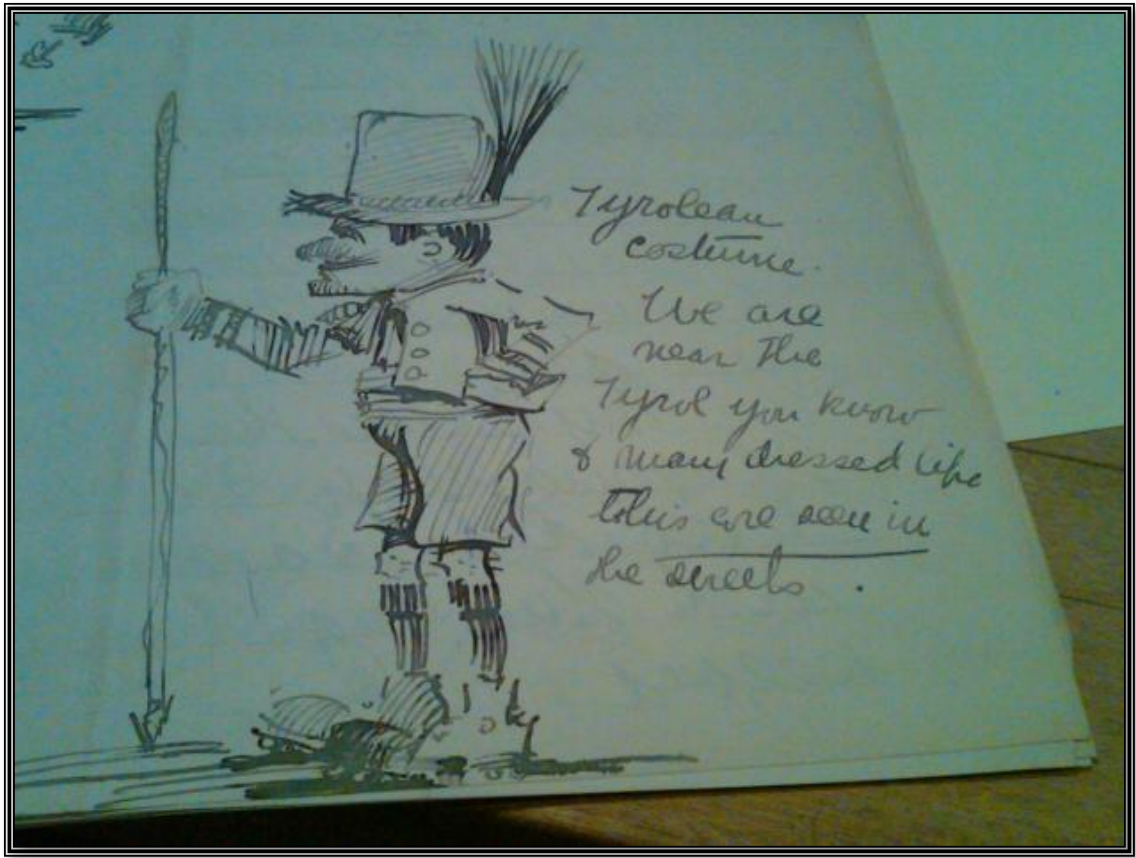 Tyrolean
costume.
We are
near The
Tyrol you know
& many dressed like
this are seen in
the streets.